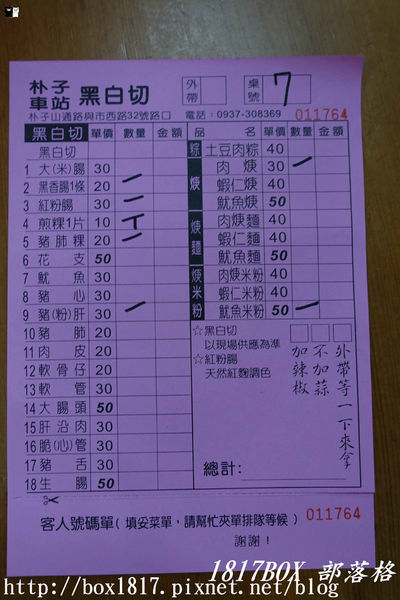 朴子車站 黑白切 外帶 桌號 7
朴子山通路與市西路32號路口 電話：0937-308369 011764
黑白切 單價 數量 金額 品名 單價 數量 金額
黑白切 粽 土豆肉粽 40
1 大(米)腸 30 焿 肉焿 30 一
2 黑香腸1條 20 一 蝦仁焿 40
3 紅粉腸 30 一 魷魚焿 50
4 煎粿1片 10 焿麵 肉焿麵 40
5 豬肺粿 20 一 蝦仁麵 40
6 花支 50 魷魚麵 50
7 魷魚 30 焿米粉 肉焿米粉 40
8 豬心 30 蝦仁米粉 40
9 豬(粉)肝 30 一 魷魚米粉 50 一
10 豬肺 20 ☆黑白切
11 肉皮 20 以現場供應為準
12 軟骨仔 20 ☆紅粉腸
13 軟管 30 天然紅麴調色
14 大腸頭 50
15 肝沿肉 30
16 脆(心)管 30
17 豬舌 30
18 生腸 50
外帶等一下來拿
不加蒜
加辣椒
總計：
客人號碼單(填妥菜單，請幫忙夾單排隊等候) 011764
謝謝！
1817BOX 部落格
http://box1817.pixnet.net/blog